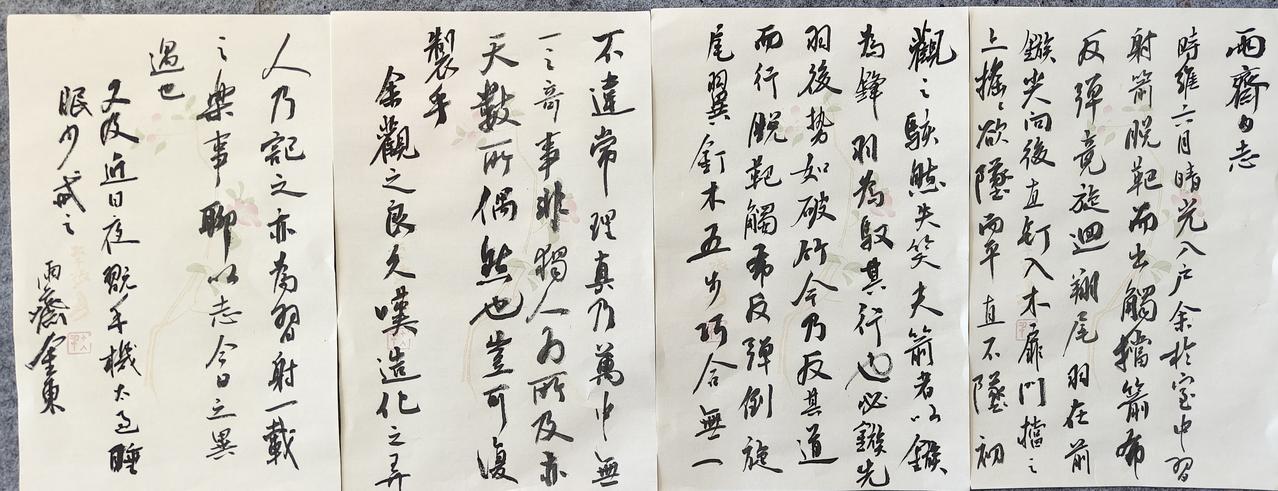 雨齋日志
時維六月晴光入戶余於室中習
射箭脫靶而出觸擋箭布
反彈竟旋迴翔尾羽在前
鏃尖向後直釘入木扉門擋之
上搖之欲墜而平直不墜初
觀之駭然失笑夫箭者以鏃
為鋒羽為馭其行也必鏃先
羽後勢如破竹今乃反其道
而行脫靶觸布反彈倒旋
尾翼釘木五步巧合無一
不違常理真乃萬中無
一之奇事非獨人力所及亦
天數所偶然也豈可復
製乎
余觀之良久嘆造化之弄
人乃記之亦為習射一載
之樂事聊以志今日之異
遇也
又及近日夜甎手機太過睡
眠少戒之
雨齋金東